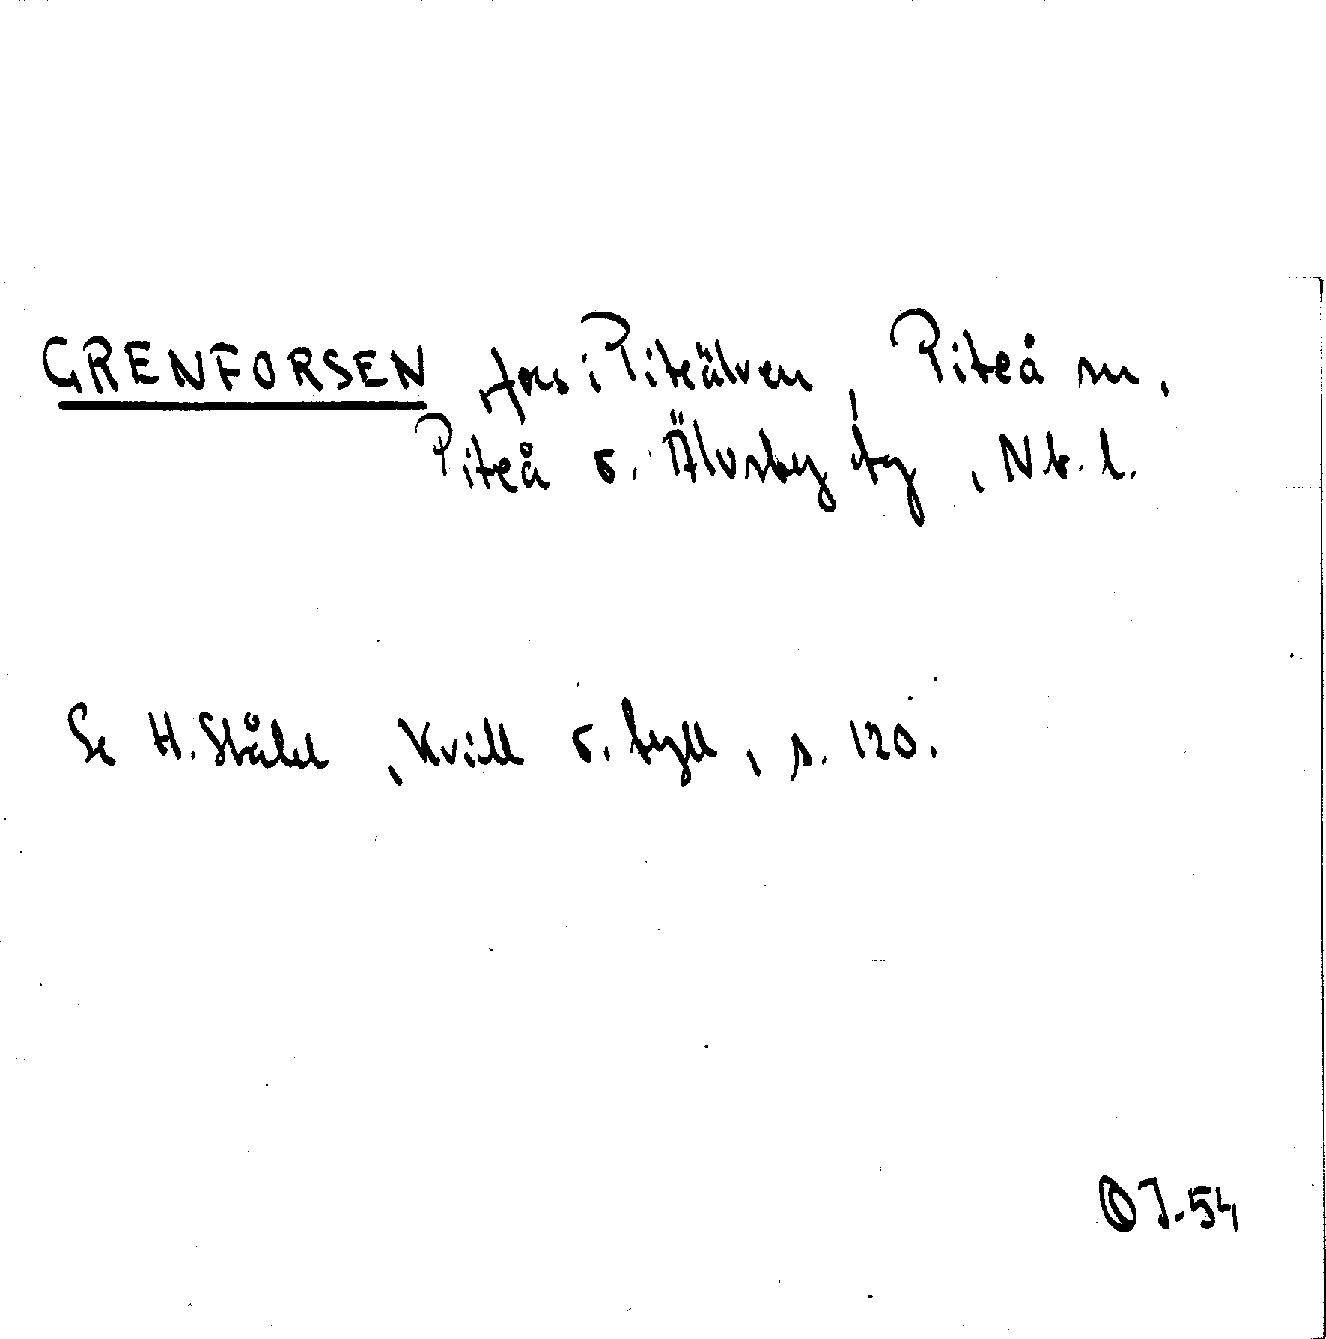 GRENFORSEN, fors i Piteälven, Piteå sn,
Piteå o. Älvsby tg, Nb. l.
Se H. Ståhl, Kvill o. tyll, s. 120.
OJ-54